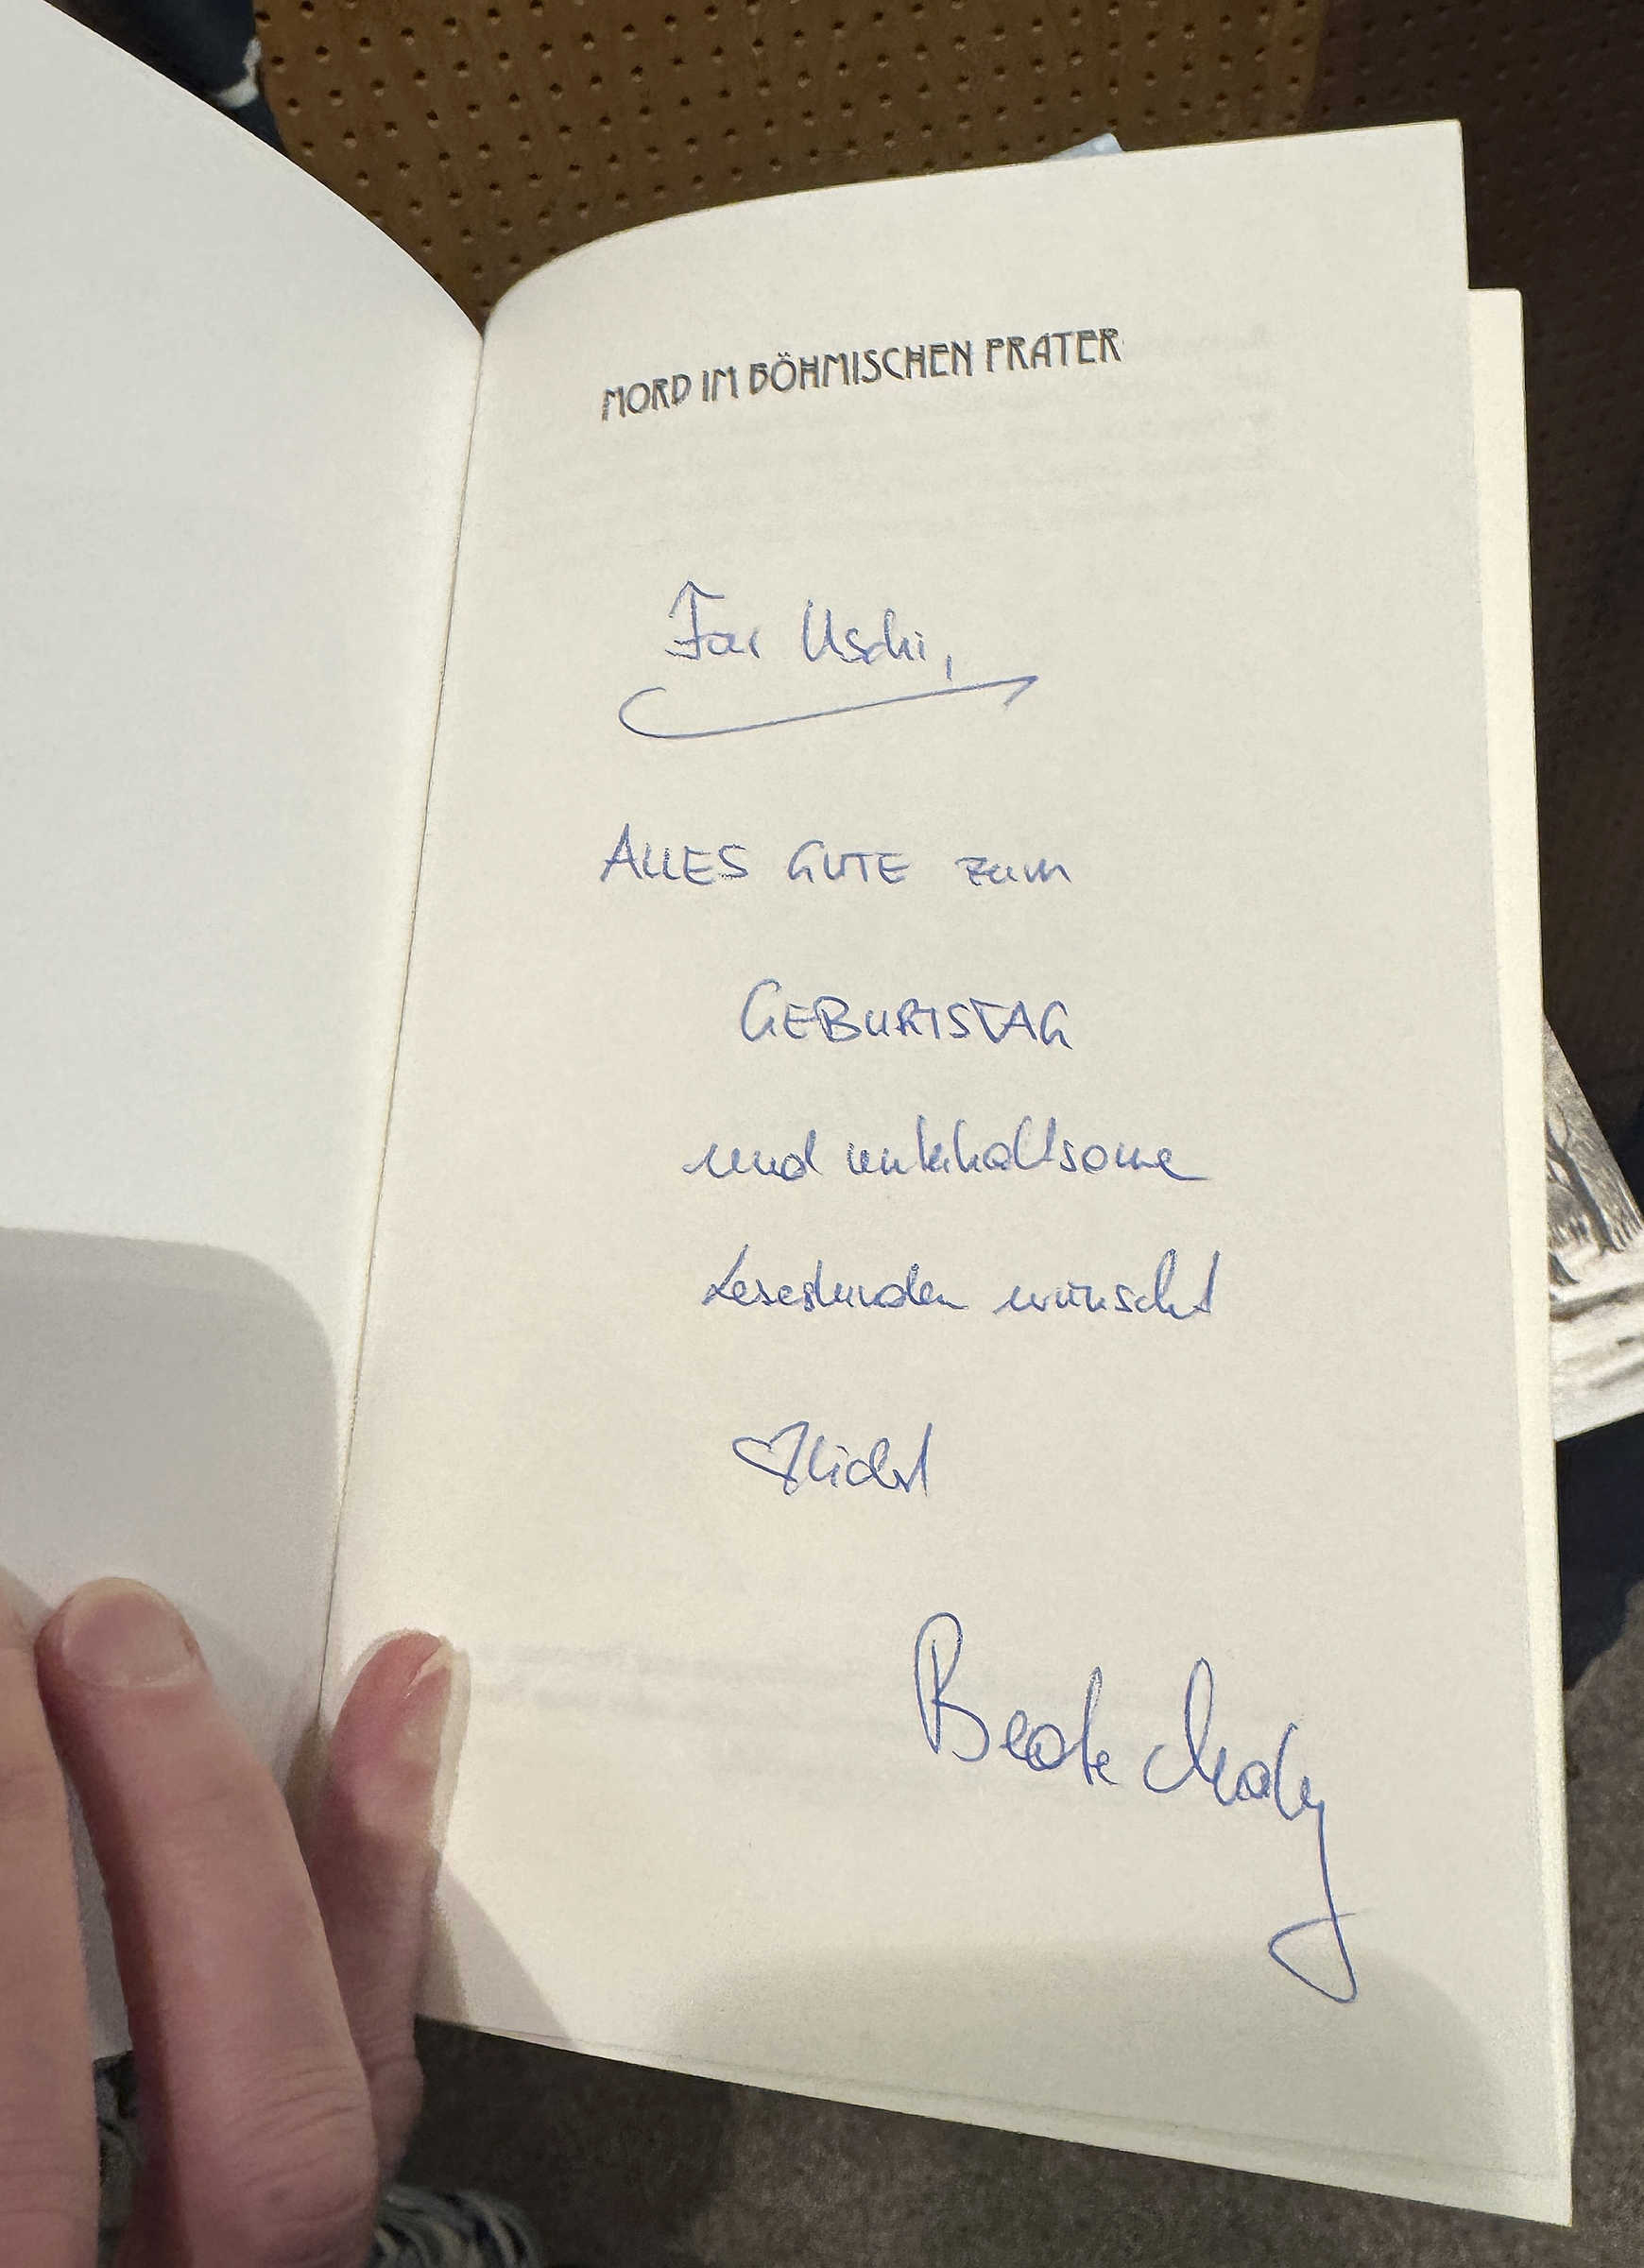 MORD IM BÖHMISCHEN PRATER
Für Uschi,
ALLES GUTE zum
GEBURTSTAG
und unterhaltsame
Lesestunden wünscht
♡lichst
Beate Maly